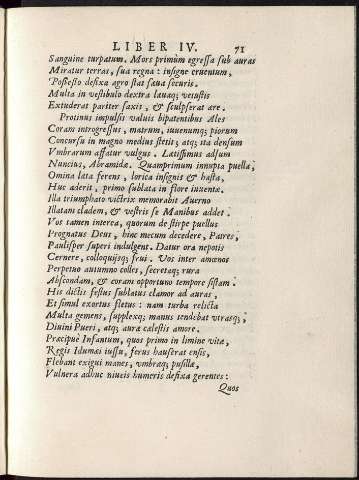 LIBER IV. 71
Sanguine turpatum. Mors primùm egressa sub auras
Miratur terras, sua regna: insigne cruentum,
Postesto defixa agro stat sæua securis.
Multa in vestibulo dextra lævaq; vetustis
Extuderat pariter saxis, & sculpserat ære.
Protinus impulsis valuis bipatentibus Ales
Coram introgressus, matrum, iuuenumq; piorum
Concursu in magno medius stetit; atq; ita densum
Vmbrarum affatur vulgus. Latissimus adsum
Nuncius, Abramidæ. Quamprimum innupta puella,
Omina læta ferens, lorica insignis & hasta,
Huc aderit, primo sublata in flore iuuentæ.
Illa triumphato victrix memorabit Auerno
Illatam cladem, & vestris se Manibus addet.
Vos tamen interea, quorum de stirpe puellus
Prognatus Deus, hinc mecum decedere, Patres,
Paulisper superi indulgent. Datur ora nepotis
Cernere, colloquijsq; frui. Vos inter amœnos
Perpetuo autumno colles, secretaq; rura
Abscondam, & coram opportuno tempore sistam.
His dictis festus sublatus clamor ad auras,
Et simul exortus fletus: nam turba relicta
Multa gemens, supplexq; manus tendebat vtrasq;,
Diuini Pueri, atq; auræ cælestis amore.
Præcipuè Infantum, quos primo in limine vitæ,
Regis Idumæi iussu, ferus hauserat ensis,
Flebant exigui manes, vmbræq; pusillæ,
Vulnera adhuc niueis humeris defixa gerentes:
Quos